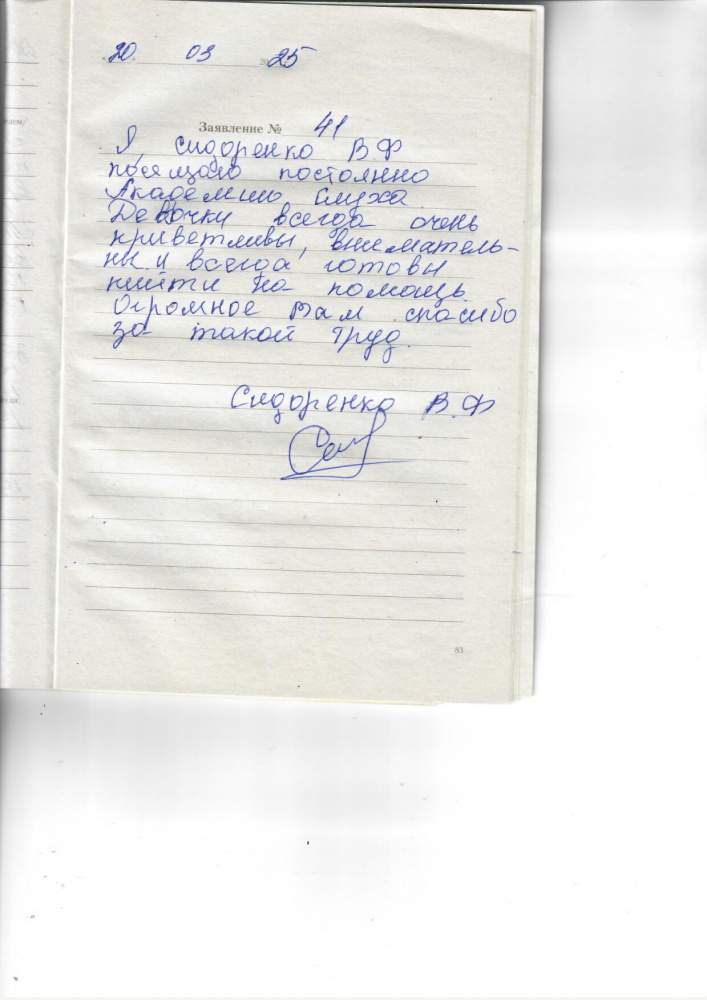 20 03 2025
Заявление № 41
Я, Сидоренко В.Ф
посещаю постоянно
Академию слуха.
Девочки всегда очень
приветливы, вниматель-
ны и всегда готовы
прийти на помощь.
Огромное Вам спасибо
за такой труд.
Сидоренко В.Ф
83